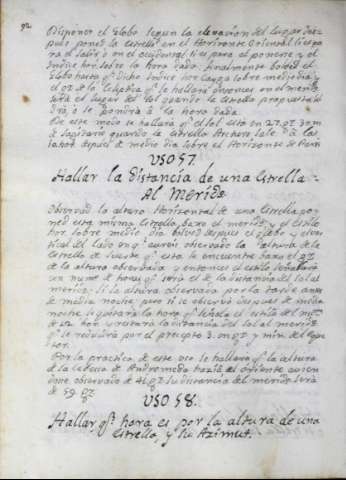 92
Disponer el Globo segun la elevacion del lugar des-
pues poned la Estrella en el Horizonte Oriental si espa
ra el salir o en el occidental si es para el ponerse y el
Indice hor. sobre la hora dada: finalmente bolved el
Globo hasta qe. dicho Indice hor. cayga sobre mediodia y
el gr. de la Ecliptica qe. se hallará entonces en el merid.
será el lugar del Sol quando la Estrella propuesta sal
drá o se pondrá a la hora dada.
De este modo se hallara qe. el Sol esta en 27. gr. 30 m.
de Sagitario quando la estrella Arcturo sale a las
horas depues de medio dia sobre el Horizonte de Paris
USO 57.
Hallar la distancia de una Estrella
Al Merido.
Observad la altura Horizontal de una Estrella po-
ned esta misma Estrella baxo el merido. y el estilo
hor. sobre medio dia bolved despues el globo y el ver
tical del lado en qe. aureis observado la altura de la
Estrella de suerte qe. esta se encuentre baxo el gr.
de la altura observada y entonces el estilo señalará
un num. de horas qe. será el de la distancia del Sol al
merido. Si la altura observada por la tarde antes
de media noche; pero si se observó despues de media
noche se quitará la hora qe. señala el estilo del no.
de 12 hor. y restará la distancia del Sol al merido.
qe. se reducirá por el precepto 3. en gr. y min. del Equa
tor.
Por la practica de este uso se hallará qe. la altura
de la Cabeza de Andromeda hazia el oriente avien
dose observado de 41. gr. su distancia del merido. será
de 59. gr.
USO 58.
Hallar qe. hora es por la altura de una
Estrella, y su Azimut.